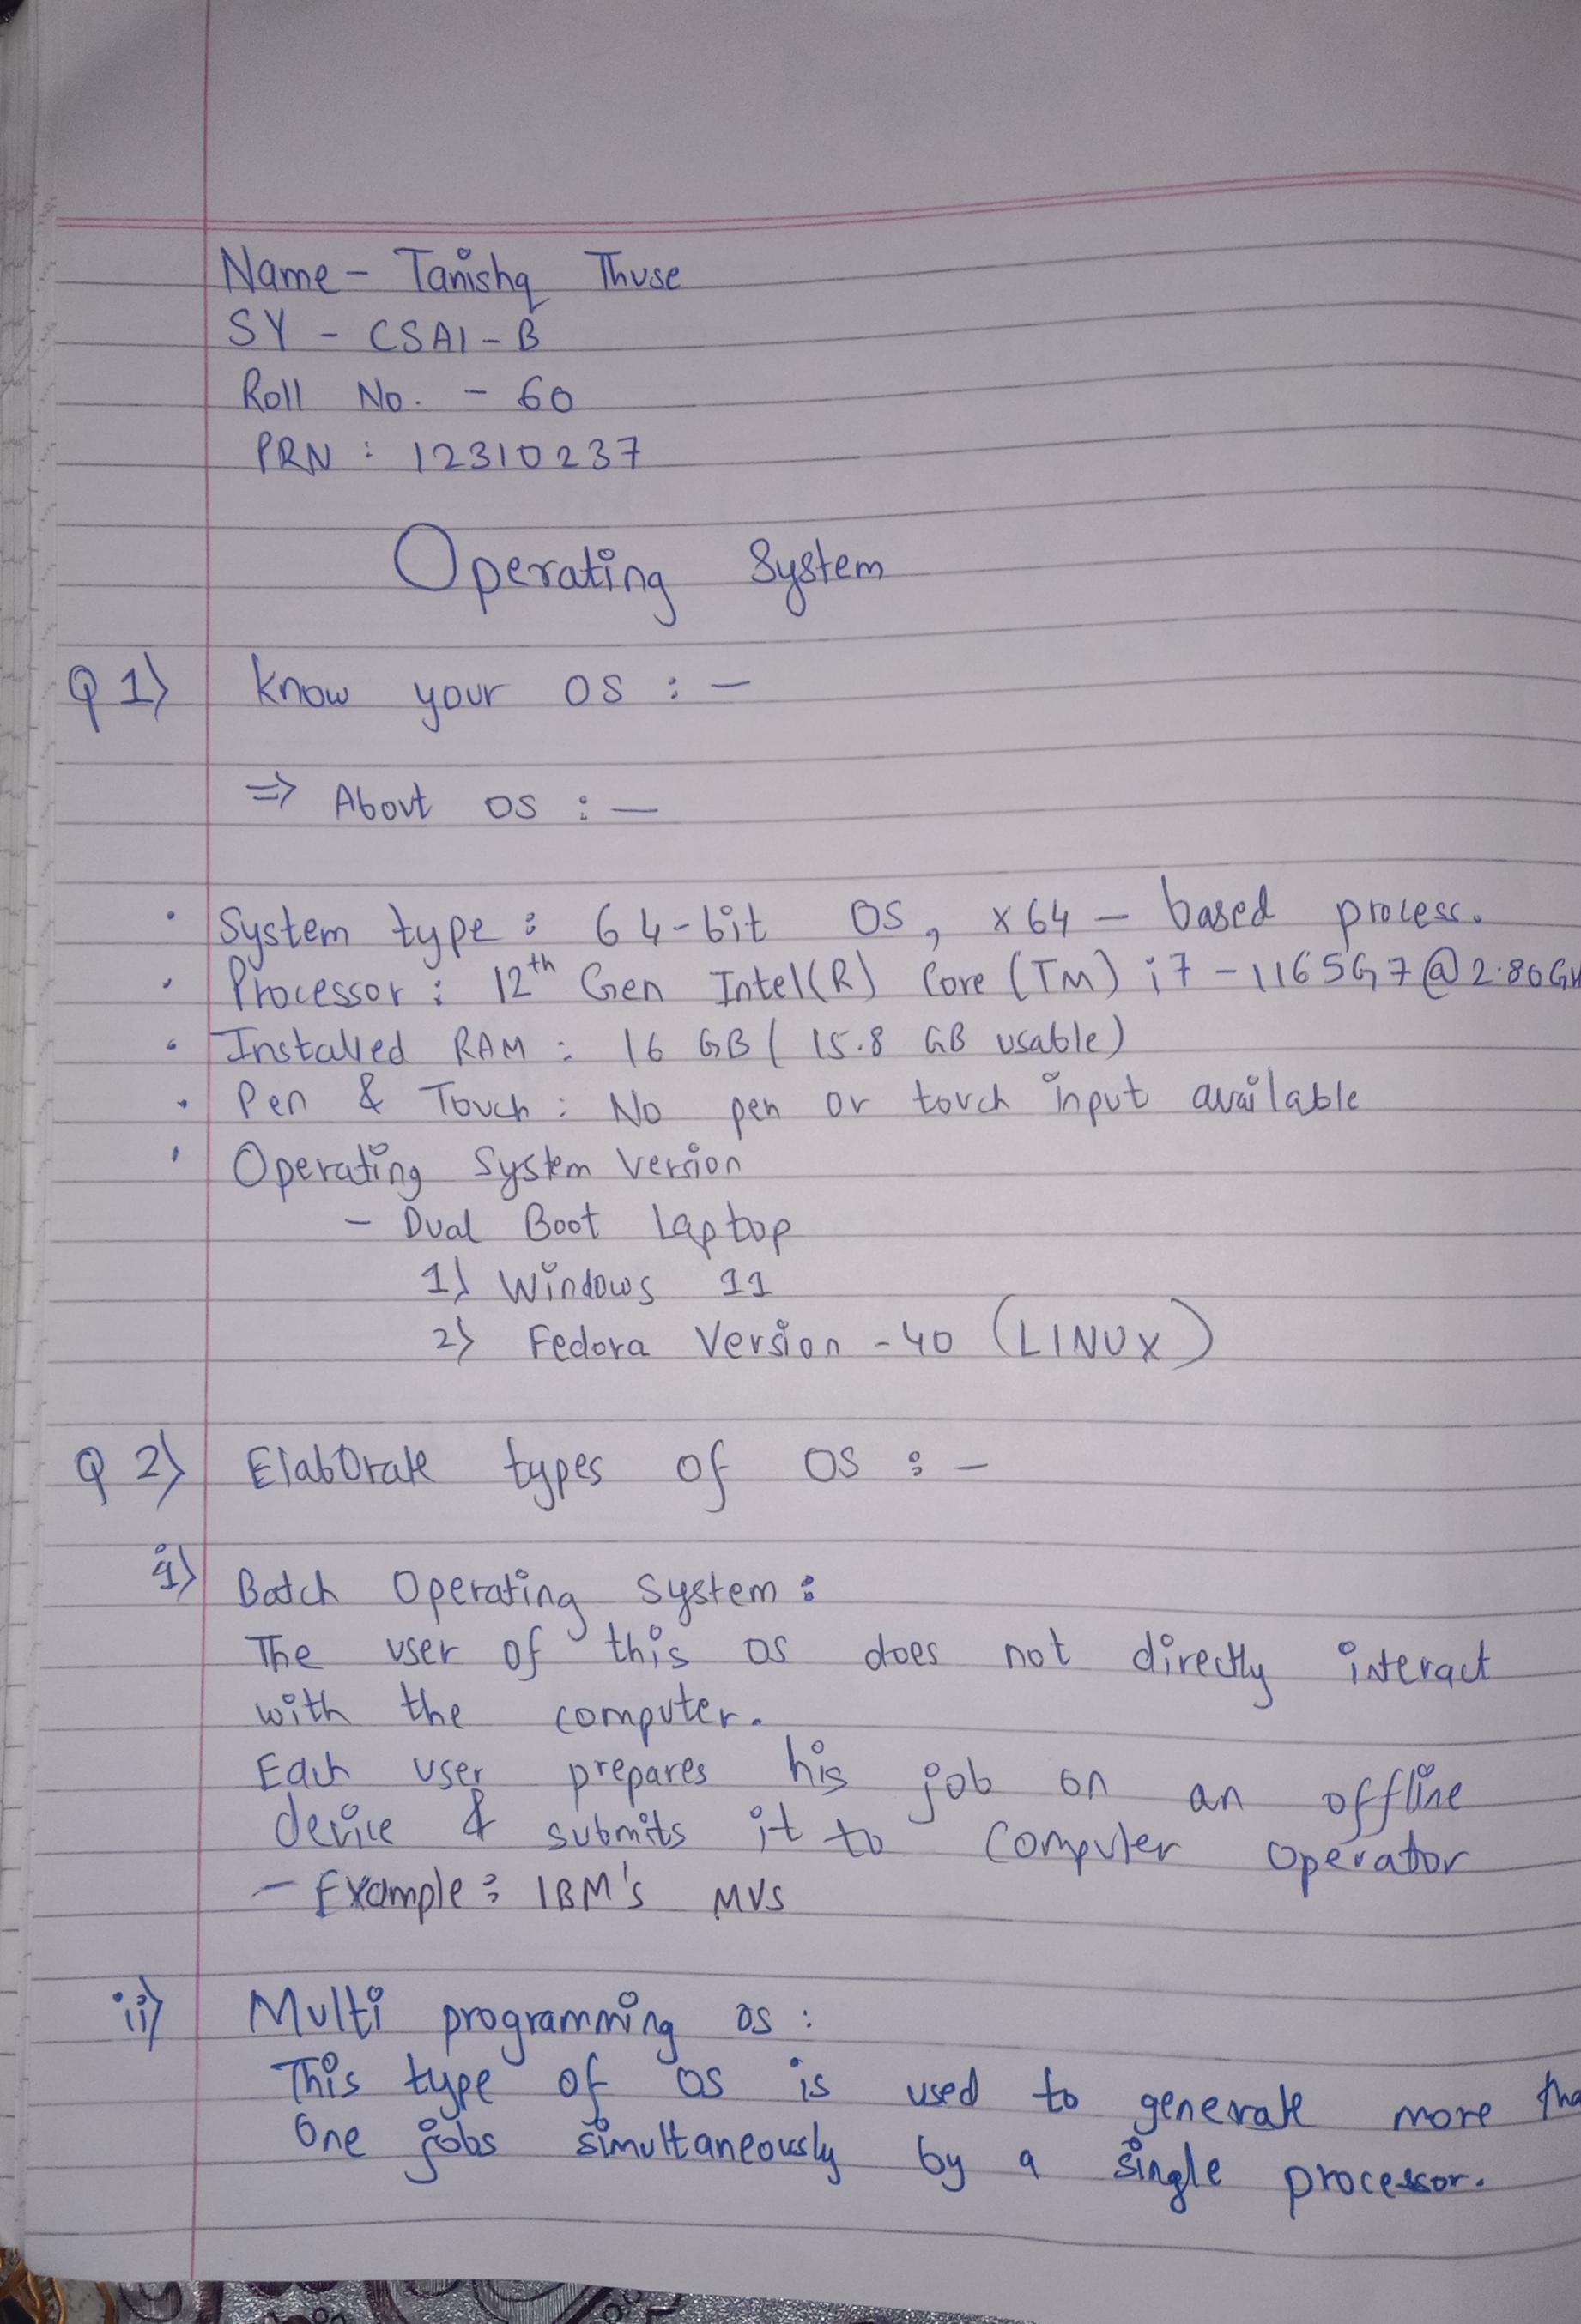 Name - Tanishq Thuse
SY - CSAI - B
Roll No. - 60
PRN : 12310237
Operating System
Q 1) Know your OS : -
=> About OS : -
• System type : 64-bit OS, x64 - based process.
• Processor : 12th Gen Intel(R) Core (TM) i7 - 1165G7 @ 2.80 GH
• Installed RAM : 16 GB ( 15.8 GB usable)
• Pen & Touch : No pen or touch input available
• Operating System Version
- Dual Boot Laptop
1) Windows 11
2) Fedora Version - 40 (LINUX)
Q 2) Elaborate types of OS : -
i) Batch Operating System :
The user of this OS does not directly interact
with the computer.
Each user prepares his job on an offline
device & submits it to Computer Operator
- Example : IBM's MVS
ii) Multi programming OS :
This type of OS is used to generate more tha
One jobs simultaneously by a single processor.